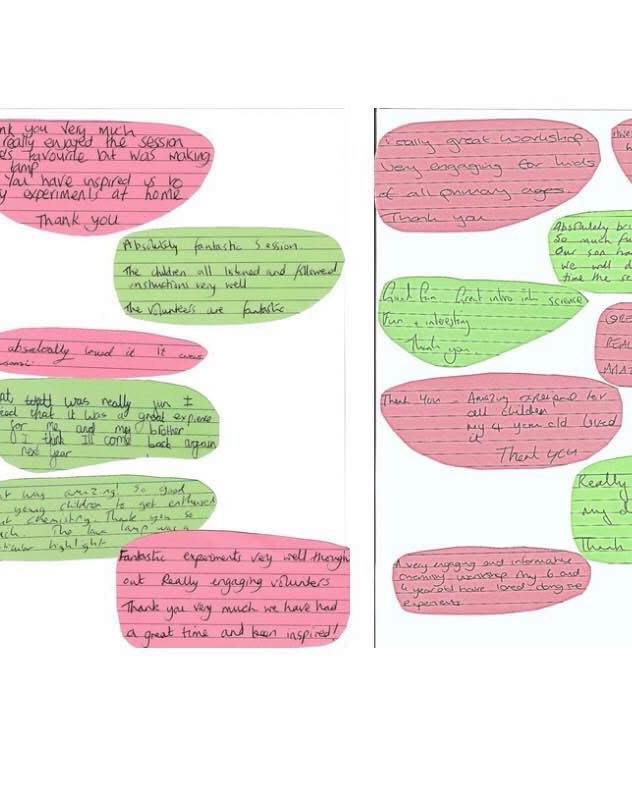 nk you very much
really enjoyed the session
's favourite bit was making
lamp
You have inspired us to
y experiments at home
Thank you
Absolutely fantastic session.
The children all listened and followed
instructions very well
The volunteers are fantastic
absolutely loved it it was
was really fun I
that it was a great expience
for me and my brother
I think Ill come back again
next year
was amazing! So good
young children to get enthused
chemistry. Thank you so
The lava lamp was a
highlight
Fantastic experiments very well though
out Really engaging volunters
Thank you very much we have had
a great time and been inspired!
really great workshop.
Very engaging for kids
of all primary ages.
Thank you
Absolutely bri
So much fu
Our son ha
we will d
time the se
Great fun. Great intro into science
Fun + interesting
Thank you.
GRE
REAL
AMAZ
Thank you - Amazing experience for
all children
my 4 year old loved
it
Thank you
Really
my d
Thank
A very engaging and informative
chemistry workshop My 6 and
4 year old have loved doing the
experiments.